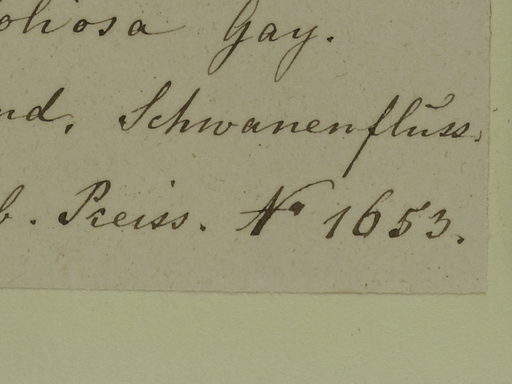 oliosa Gay.
nd, Schwanenfluss.
b. Preiss. No 1653.